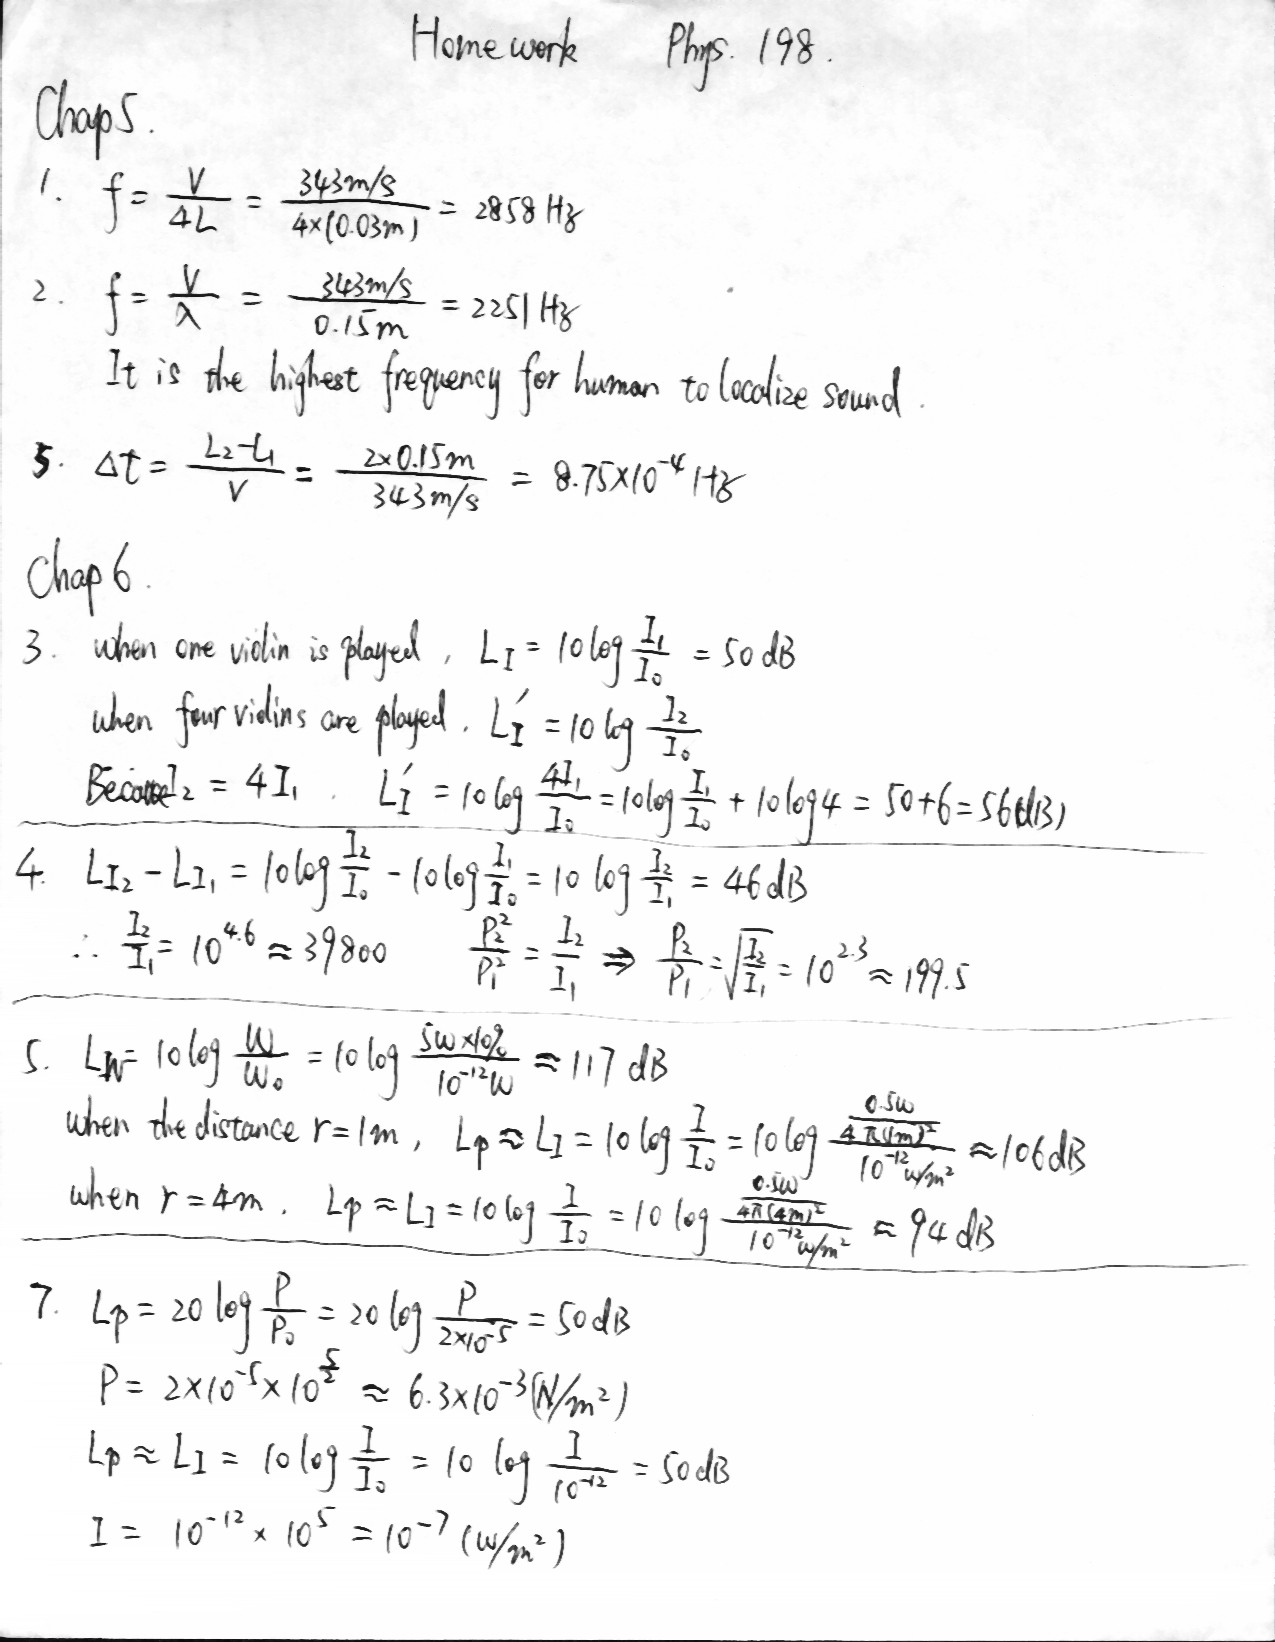 Homework Phys. 198.
Chap 5.
1. f = V/4L = 343m/s / 4×(0.03m) = 2858 Hz
2. f = V/λ = 343m/s / 0.15m = 2251 Hz
It is the highest frequency for human to localize sound.
5. Δt = L₂-L₁ / V = 2×0.15m / 343m/s = 8.75×10⁻⁴ Hz
Chap 6.
3. when one violin is played, L_I = 10 log I₁/I₀ = 50 dB
when four violins are played. L_I' = 10 log I₂/I₀
Because I₂ = 4I₁. L_I' = 10 log 4I₁/I₀ = 10 log I₁/I₀ + 10 log 4 = 50+6 = 56(dB)
4. L_I₂ - L_I₁ = 10 log I₂/I₀ - 10 log I₁/I₀ = 10 log I₂/I₁ = 46 dB
∴ I₂/I₁ = 10^4.6 ≈ 39800 P₂²/P₁² = I₂/I₁ ⇒ P₂/P₁ = √(I₂/I₁) = 10^2.3 ≈ 199.5
5. L_W = 10 log W/W₀ = 10 log 5W×10% / 10⁻¹²W ≈ 117 dB
when the distance r=1m, Lp ≈ L_I = 10 log I/I₀ = 10 log (0.5W / 4π(1m)²) / 10⁻¹² W/m² ≈ 106 dB
when r=4m. Lp ≈ L_I = 10 log I/I₀ = 10 log (0.5W / 4π(4m)²) / 10⁻¹² W/m² ≈ 94 dB
7. Lp = 20 log P/P₀ = 20 log P / 2×10⁻⁵ = 50 dB
P = 2×10⁻⁵ × 10^(5/2) ≈ 6.3×10⁻³ (N/m²)
Lp ≈ L_I = 10 log I/I₀ = 10 log I/10⁻¹² = 50 dB
I = 10⁻¹² × 10⁵ = 10⁻⁷ (W/m²)